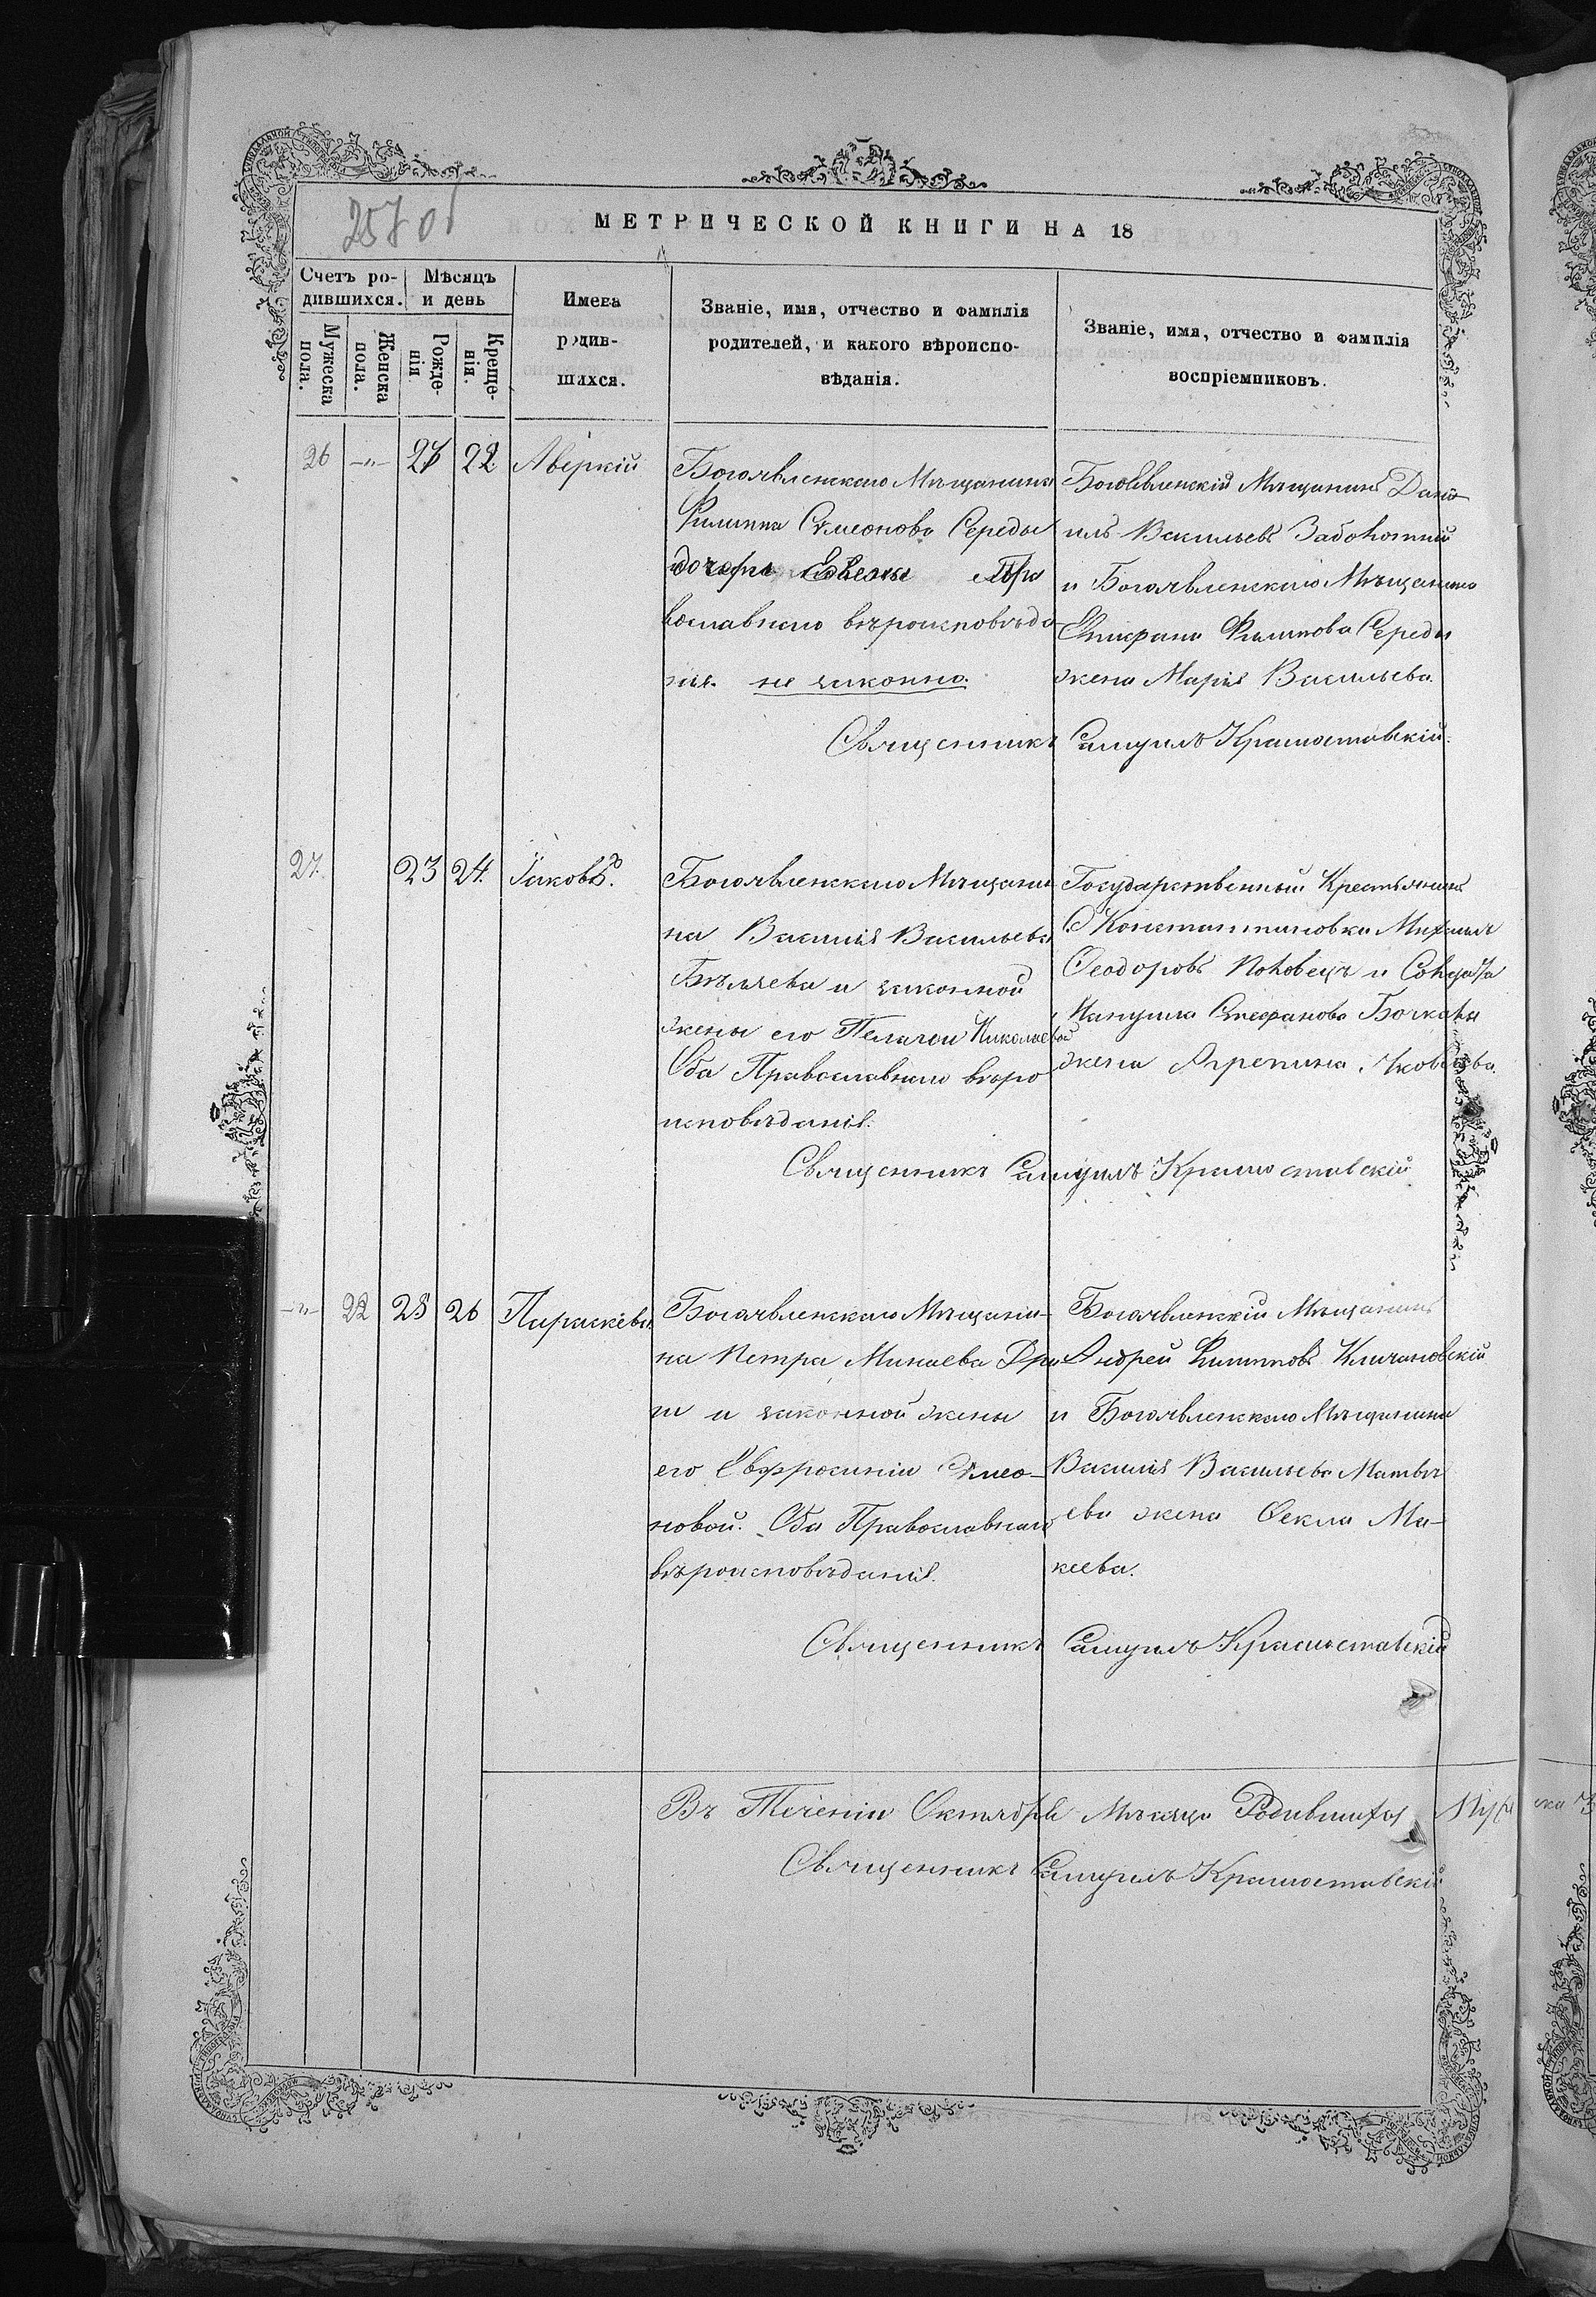 257 об
МЕТРИЧЕСКОЙ КНИГИ НА 18
Счетъ ро-
дившихся.
Мѣсяцъ
и день
Мужеска
пола.
Женска
пола.
Рожде-
нія.
Креще-
нія.
Имена
родив-
шихся.
Званіе, имя, отчество и фамилія
родителей, и какого вѣроиспо-
вѣданія.
Званіе, имя, отчество и фамилія
воспріемниковъ.
26 -"- 22 Аверкій
Богоявленскаго Мѣщанина
Филиппа Сѵмеонова Середы
дочери Елены Пра
вославнаго вѣроисповѣда
нія. не законно.
Богоявленскій Мѣщанинъ Дані
илъ Васильевъ
и Богоявленскаго Мѣщанина
Филипова Середы
жена Марія Васильева.
Священникъ Самуилъ Красноставскій.
27. 23 24. Іаковъ.
Богоявленскаго Мѣщани
на Василія Васильева
Бѣляева и законной
жены его Пелагеи Николаевой
Оба Православнаго вѣро
исповѣданія.
Государственный Крестьянинъ
С. Константиновки Михаилъ
Ѳеодоровъ и Солдата
Мануила Стефанова Бочкова
жена Агрепина Яковлева.
Священникъ Самуилъ Красноставскій
-"- 22 25 26 Параскева
Богоявленскаго Мѣщани-
на Петра Минаева
и законной жены
его Евфросиніи Сѵмео-
новой. Оба Православнаго
вѣроисповѣданія.
Богоявленскій Мѣщанинъ
Андрей Филиповъ
и Богоявленскаго Мѣщанина
Василія Васильева Матвѣ
ева жена Ѳекла Ма-
кеева.
Священникъ Самуилъ Красноставскій
Въ Теченіи Октября Мѣсяца Родившихся Муж
Священникъ Самуилъ Красноставскій